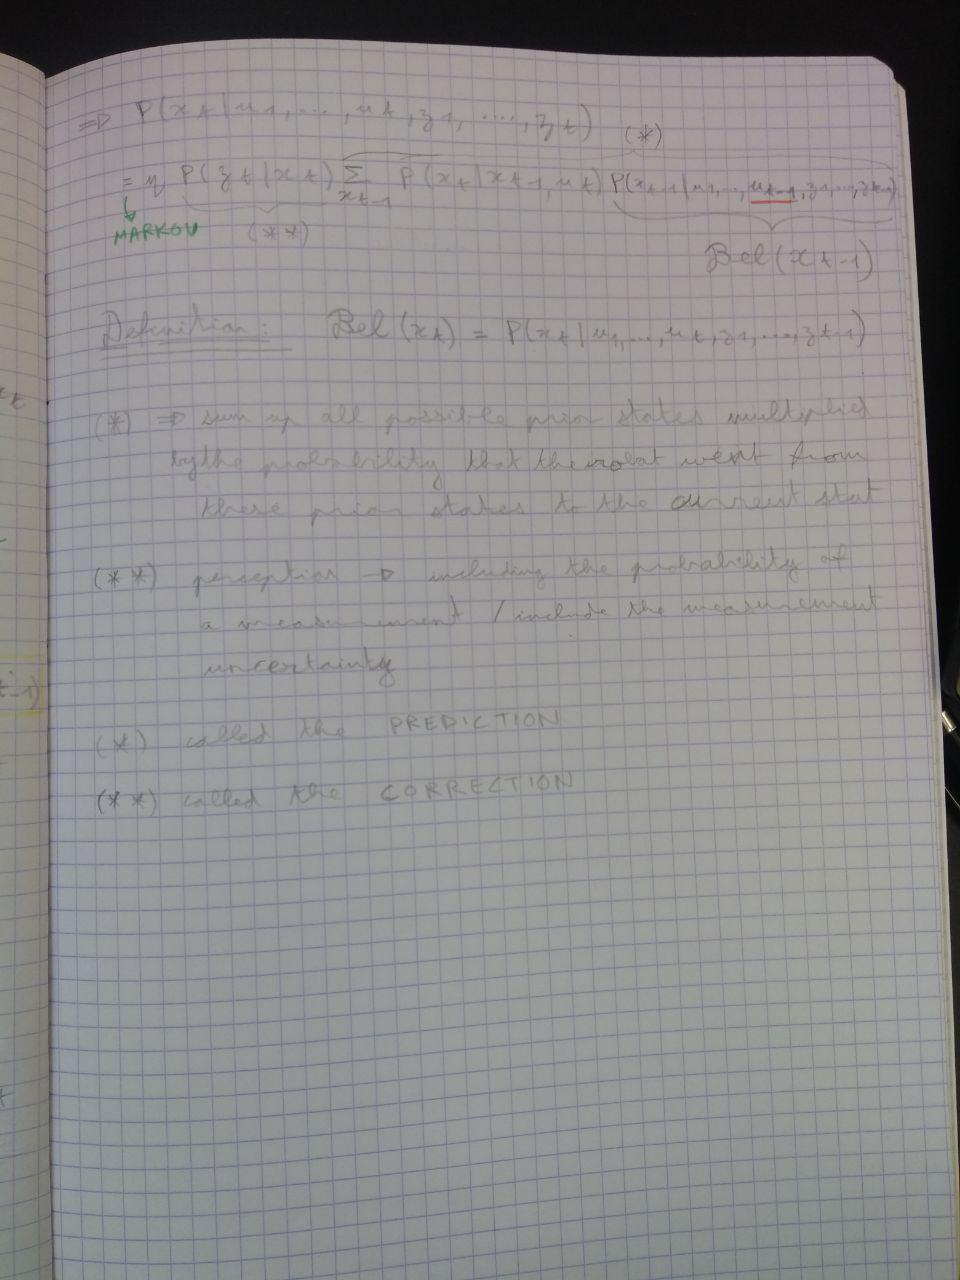 ⇒ P(x_t | u_1, ..., u_t, z_1, ...., z_t) (*)
= η P(z_t | x_t) Σ_{x_{t-1}} P(x_t | x_{t-1}, u_t) P(x_{t-1} | u_1, ..., u_{t-1}, z_1, ..., z_{t-1})
MARKOV (**) Bel(x_{t-1})
Definition: Bel(x_t) = P(x_t | u_1, ..., u_t, z_1, ..., z_{t-1})
(*) ⇒ sum up all possible prior states multiplied
by the probability that the robot went from
these prior states to the current stat
(**) perception → including the probability of
a measurement / include the measurement
uncertainty
(*) called the PREDICTION
(**) called the CORRECTION
x_t
t-1)